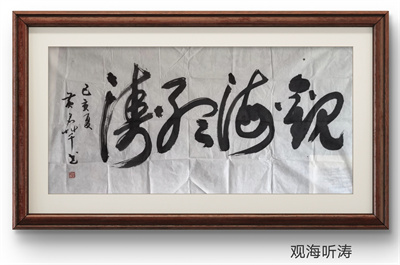 觀海聽濤
己亥夏
观海听涛